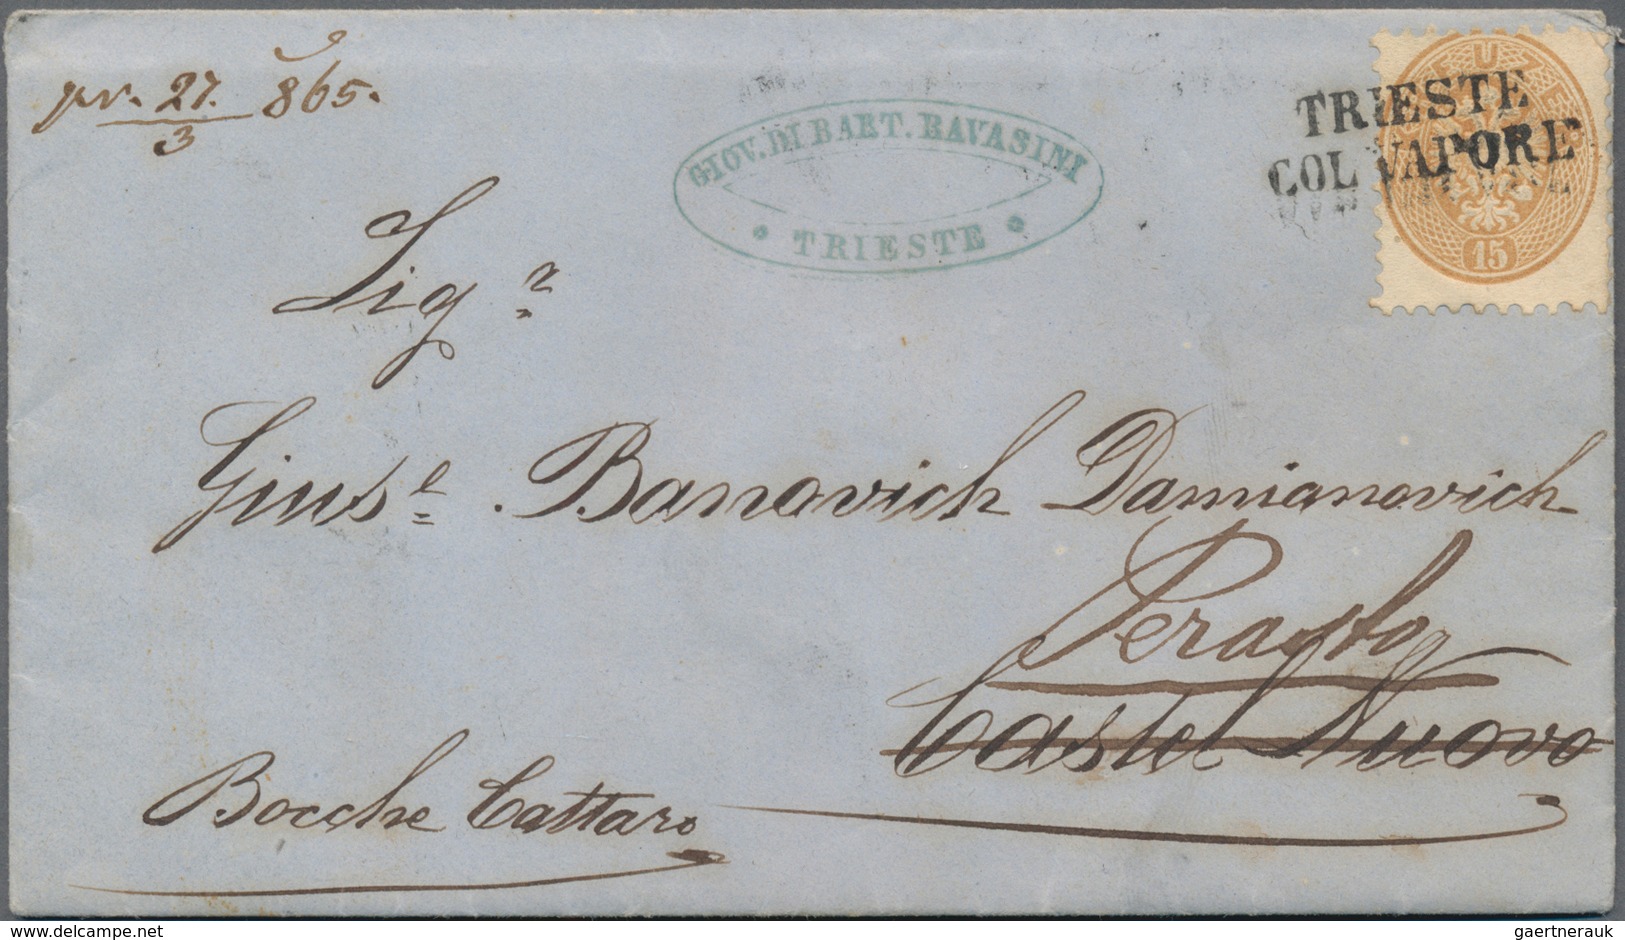 pr. 27. 865.
3
GIOV. DI BART. RAVASINI
* TRIESTE *
TRIESTE
COL VAPORE
15
Sigr
Giuse. Banovich Damianovich
Perasto
Castel Nuovo
Bocche Cattaro
delcampe.net
gaertnerauk